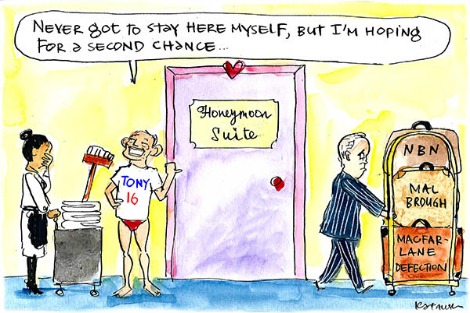 NEVER GOT TO STAY HERE MYSELF, BUT I'M HOPING
FOR A SECOND CHANCE...
Honeymoon
Suite
TONY
16
NBN
MAL
BROUGH
MACFAR-
LANE
DEFECTION